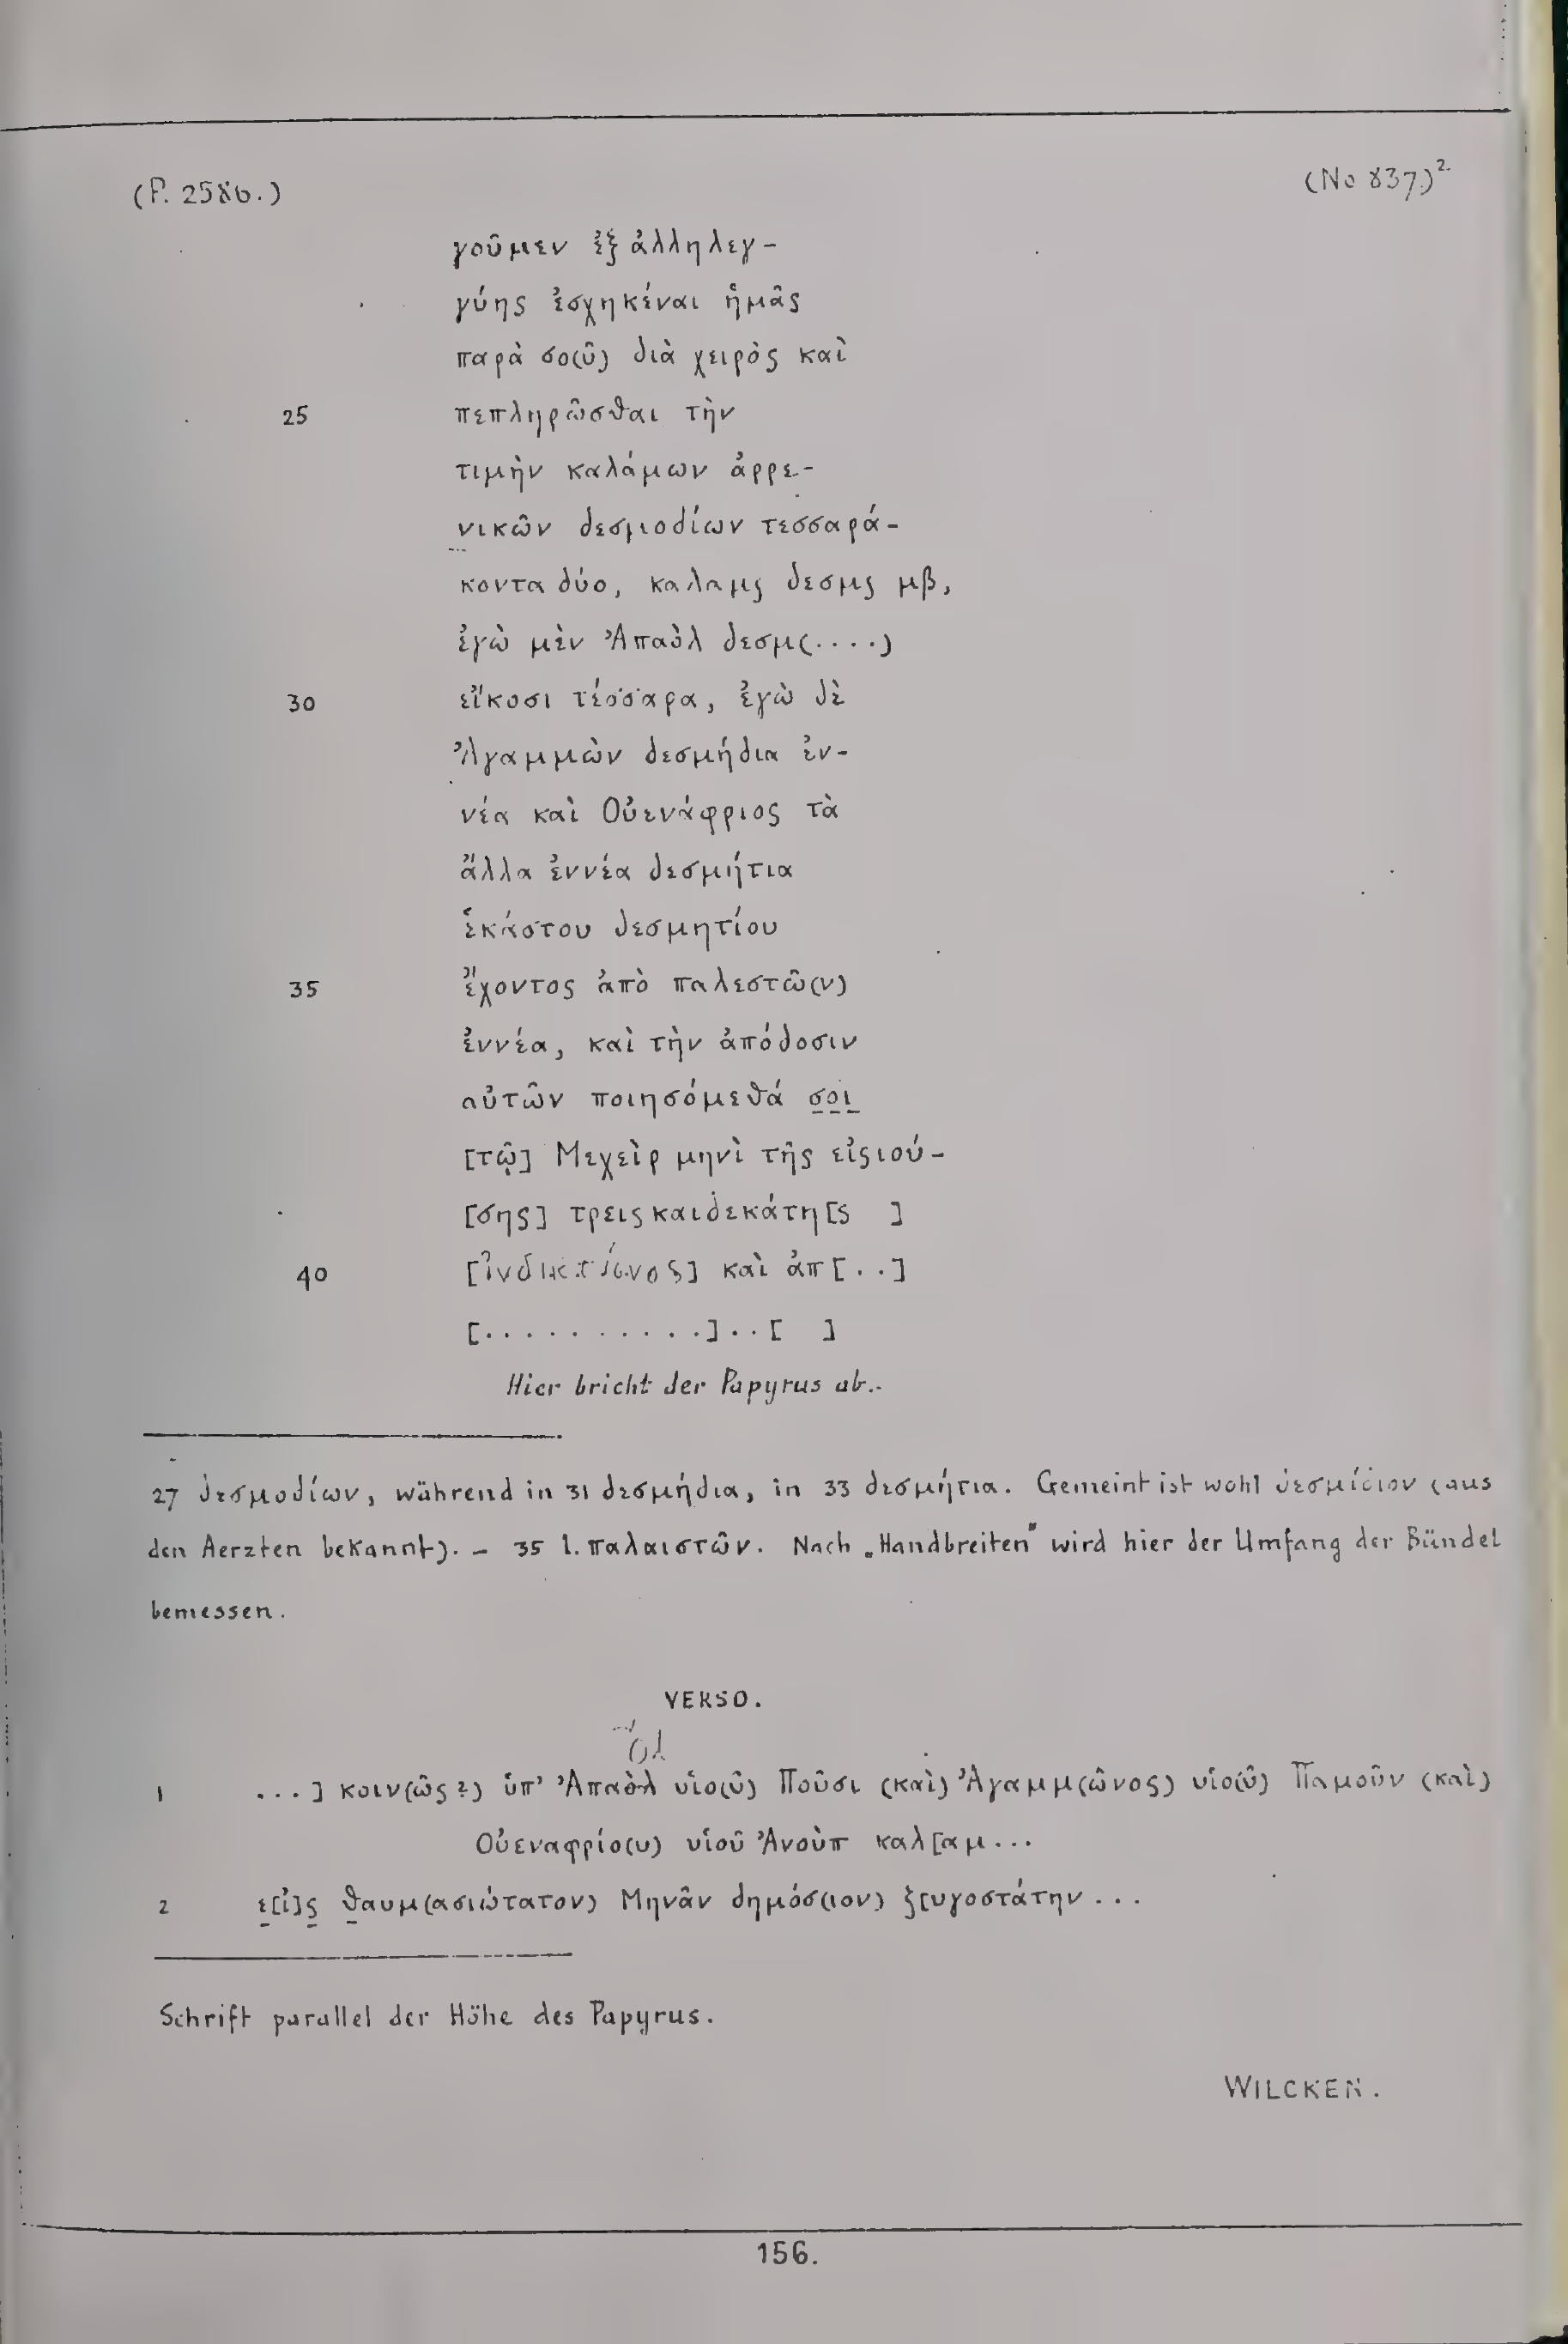 (P. 2586.) (No 837.)2.
γοῦμεν ἐξ ἀλληλεγ-
γύης ἐσχηκέναι ἡμᾶς
παρὰ σο(ῦ) διὰ χειρὸς καὶ
25 πεπληρῶσθαι τὴν
τιμὴν καλάμων ἀρρε-
νικῶν δεσμοδίων τεσσαρά-
κοντα δύο, καλαμς δεσμς μβ,
ἐγὼ μὲν Ἀπαὸλ δεσμ(....)
30 εἴκοσι τέσσαρα, ἐγὼ δὲ
Ἀγαμμὼν δεσμήδια ἐν-
νέα καὶ Οὐενάφριος τὰ
ἄλλα ἐννέα δεσμήτια
ἑκάστου δεσμητίου
35 ἔχοντος ἀπὸ παλεστῶ(ν)
ἐννέα, καὶ τὴν ἀπόδοσιν
αὐτῶν ποιησόμεθά σ̣ο̣ι̣
[τῷ] Μεχεὶρ μηνὶ τῆς εἰςιού-
[σης] τρειςκαιδεκάτη[ς ]
40 [ἰνδικτίονος] καὶ ἀπ[..]
[...........]..[ ]
Hier bricht der Papyrus ab.
27 δεσμοδίων, während in 31 δεσμήδια, in 33 δεσμήτια. Gemeint ist wohl δεσμίδιον (aus
den Aerzten bekannt). – 35 l. παλαιστῶν. Nach „Handbreiten" wird hier der Umfang der Bündel
bemessen.
VERSO.
1 ...] κοιν(ῶς?) ὑπ' Ἀπαὸλ υἱο(ῦ) Ποῦσι (καὶ) Ἀγαμμ(ῶνος) υἱο(ῦ) Παμοῦν (καὶ)
Οὐεναφρίο(υ) υἱοῦ Ἀνοὺπ καλ[αμ...
2 ε̣[ἰ]ς̣ θ̣αυμ(ασιώτατον) Μηνᾶν δημόσ(ιον) ξ[υγοστάτην...
Schrift parallel der Höhe des Papyrus.
WILCKEN.
156.